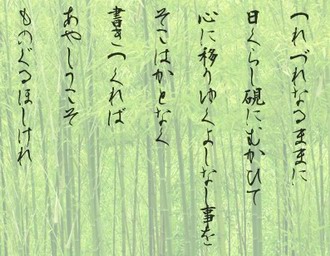 つれづれなるままに
日くらし硯にむかひて
心に移りゆくよしなし事を
そこはかとなく
書きつくれば
あやしうこそ
ものぐるほしけれ